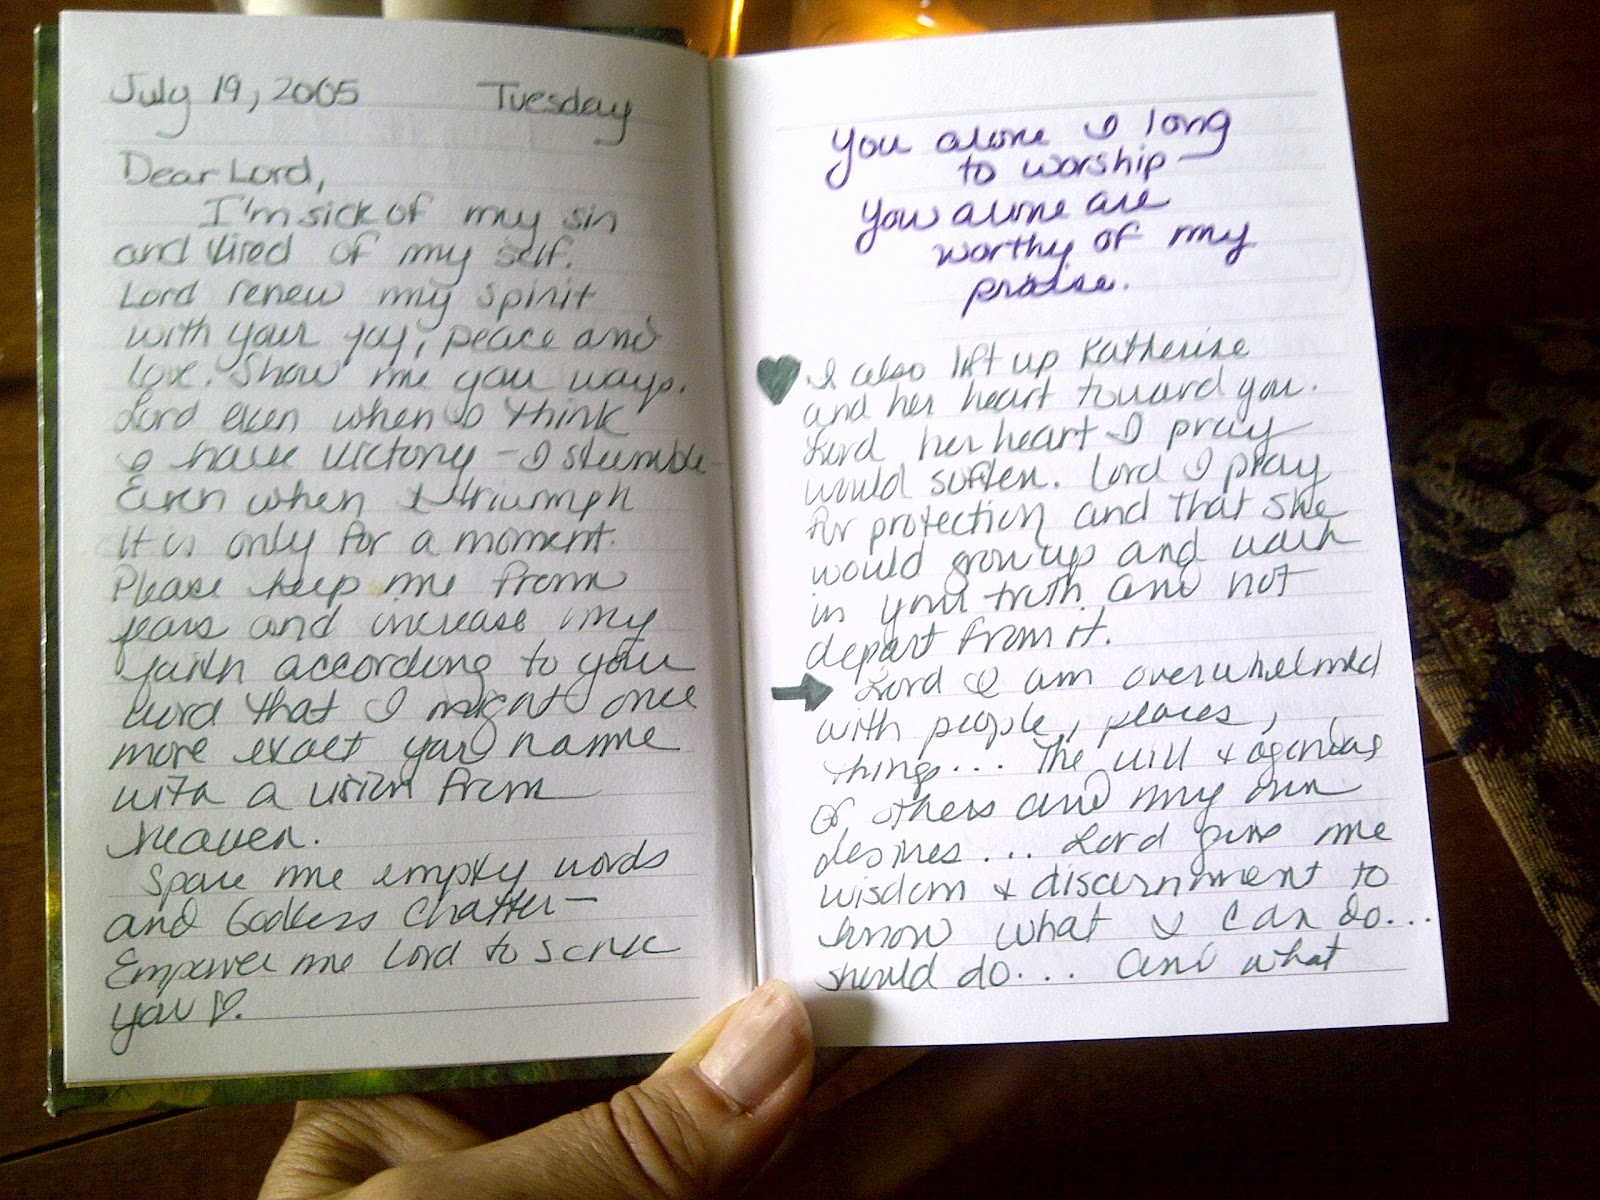 July 19, 2005 Tuesday
Dear Lord,
I'm sick of my sin
and tired of my self.
Lord renew my spirit
with your joy, peace and
love. Show me you ways.
Lord even when I think
I have victory - I stumble -
Even when I triumph
It is only for a moment.
Please keep me from
fears and increase my
faith according to your
word that I might once
more exact your name
with a vision from
heaven.
Spare me empty words
and Godless chatter -
Empower me Lord to serve
you ♡.
You alone I long
to worship -
You alone are
worthy of my
praise.
♥ I also lift up Katherine
and her heart toward you.
Lord her heart I pray
would soften. Lord I pray
for protection and that she
would grow up and walk
in your truth and not
depart from it.
→ Lord I am overwhelmed
with people, places,
things... The will + agendas
of others and my own
desires... Lord give me
wisdom + discernment to
know what I can do...
should do.... and what